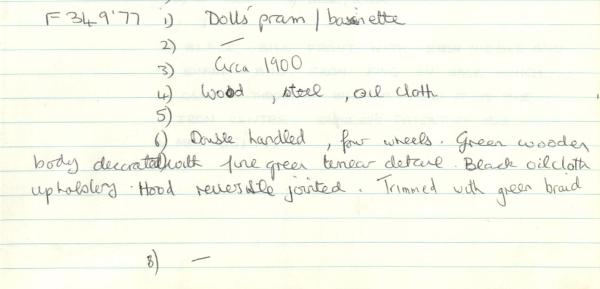 F349'77 1) Dolls' pram / bassinette
2) —
3) Circa 1900
4) Wood, steel, oil cloth
5)
6) Double handled, four wheels. Green wooden
body decorated with fine green linear detail. Black oilcloth
upholstery. Hood reversible jointed. Trimmed with green braid
8) —